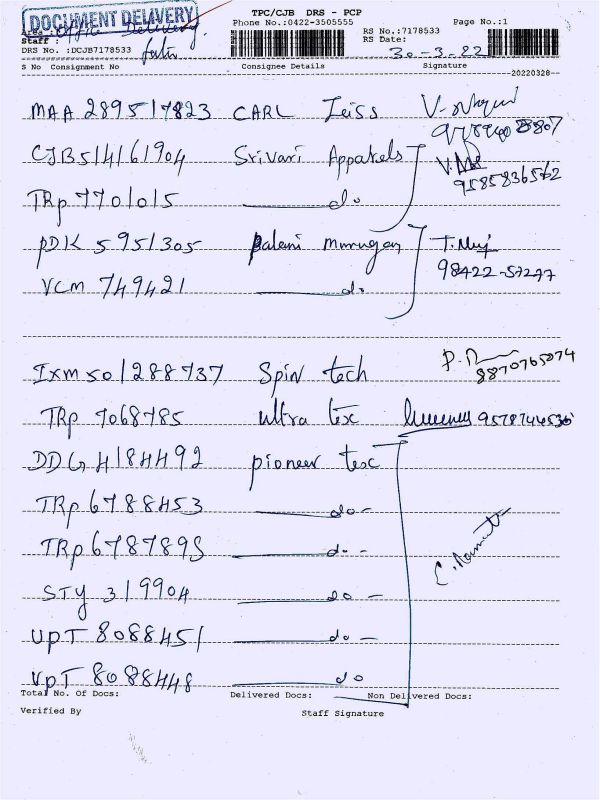 DOCUMENT DELIVERY
TPC/CJB DRS - PCP
Phone No.:0422-3505555
Page No.:1
RS No.:7178533
RS Date:
30-3-22
Staff :
DRS No. :DCJB7178533
S No Consignment No Consignee Details Signature
20220328
MAA 289517823 CARL Zeiss
CJB514161904 Srivari Apparels
9585836562
TRP 7701015 do
PDK 5951305 Palani Murugan
98422-57277
VCM 749421 do
IXM501288737 Spin tech
8870765074
TRP 7068785 ultra tex 9578744536
DDG4184492 pioneer tex
TRP 6788453 do-
TRP 6787895 do-
STY 319904 do -
UPT 8088451 do -
VPT 8088448 do
Total No. Of Docs: Delivered Docs: Non Delivered Docs:
Verified By Staff Signature